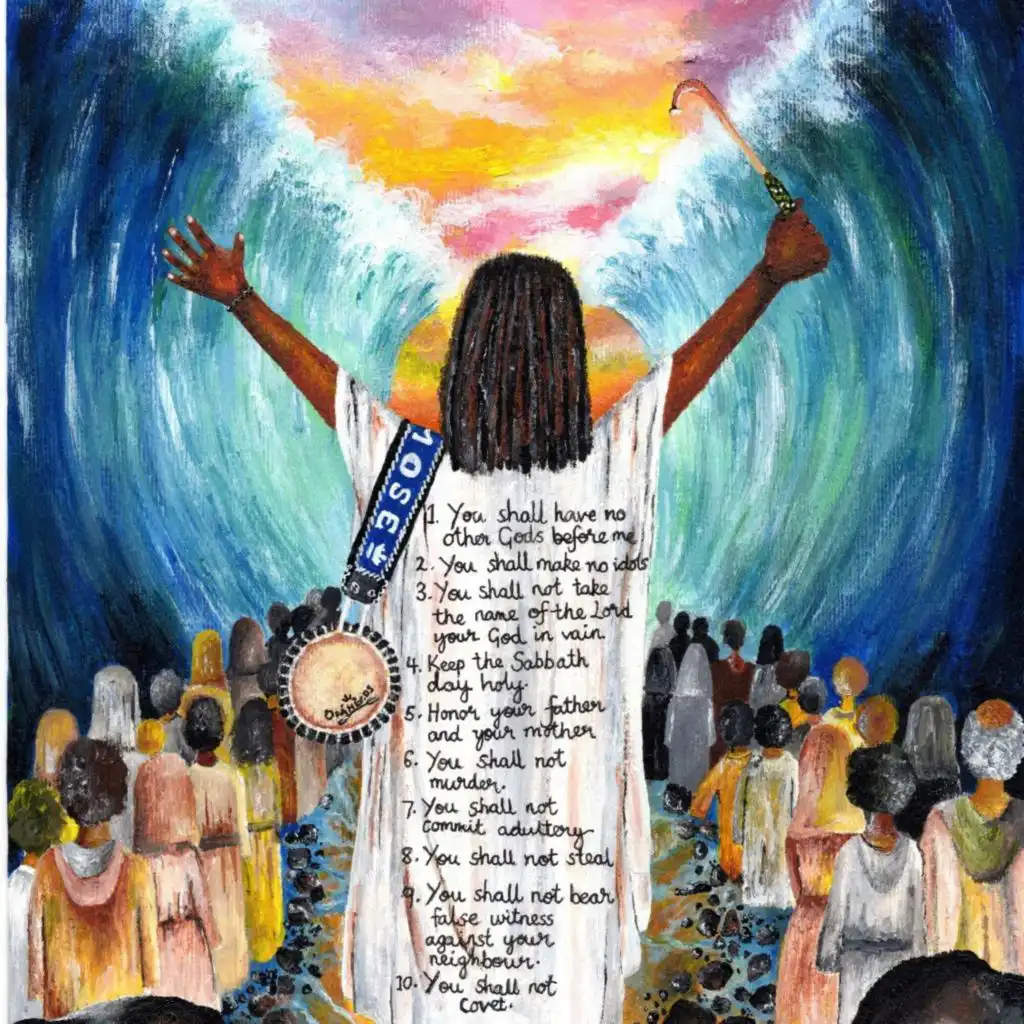 MOSE
1. You shall have no
other Gods before me
2. You shall make no idols
3. You shall not take
the name of the Lord
your God in vain
4. Keep the Sabbath
day holy.
5. Honor your father
and your mother
6. You shall not
murder.
7. You shall not
commit adultery
8. You shall not steal
9. You shall not bear
false witness
against your
neighbour.
10. You shall not
covet.